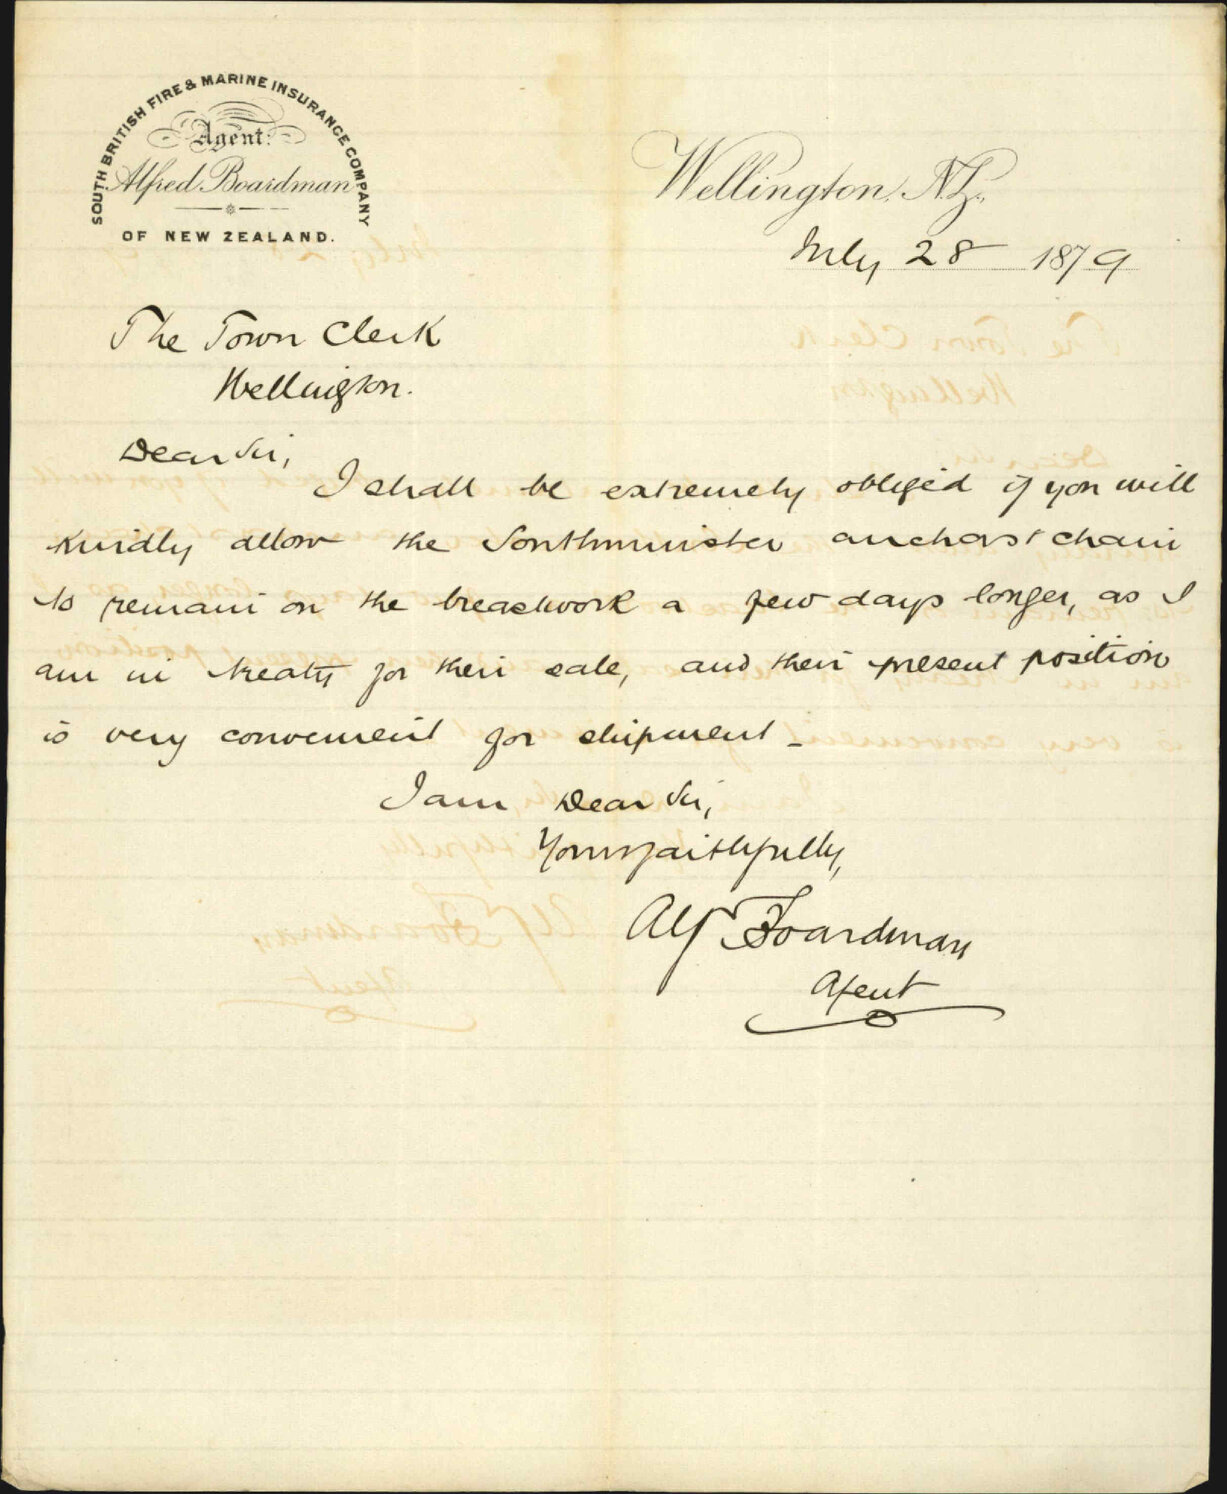 SOUTH BRITISH FIRE & MARINE INSURANCE COMPANY
Agent:
Alfred Boardman
OF NEW ZEALAND.
Wellington, N.Z.,
July 28 1879
The Town Clerk
Wellington.
Dear Sir,
I shall be extremely obliged if you will
kindly allow the Southminster anchors & chain
to remain on the breastwork a few days longer, as I
am in treaty for their sale, and their present position
is very convenient for shipment _
I am Dear Sir,
Yours faithfully,
Alf Boardman
Agent